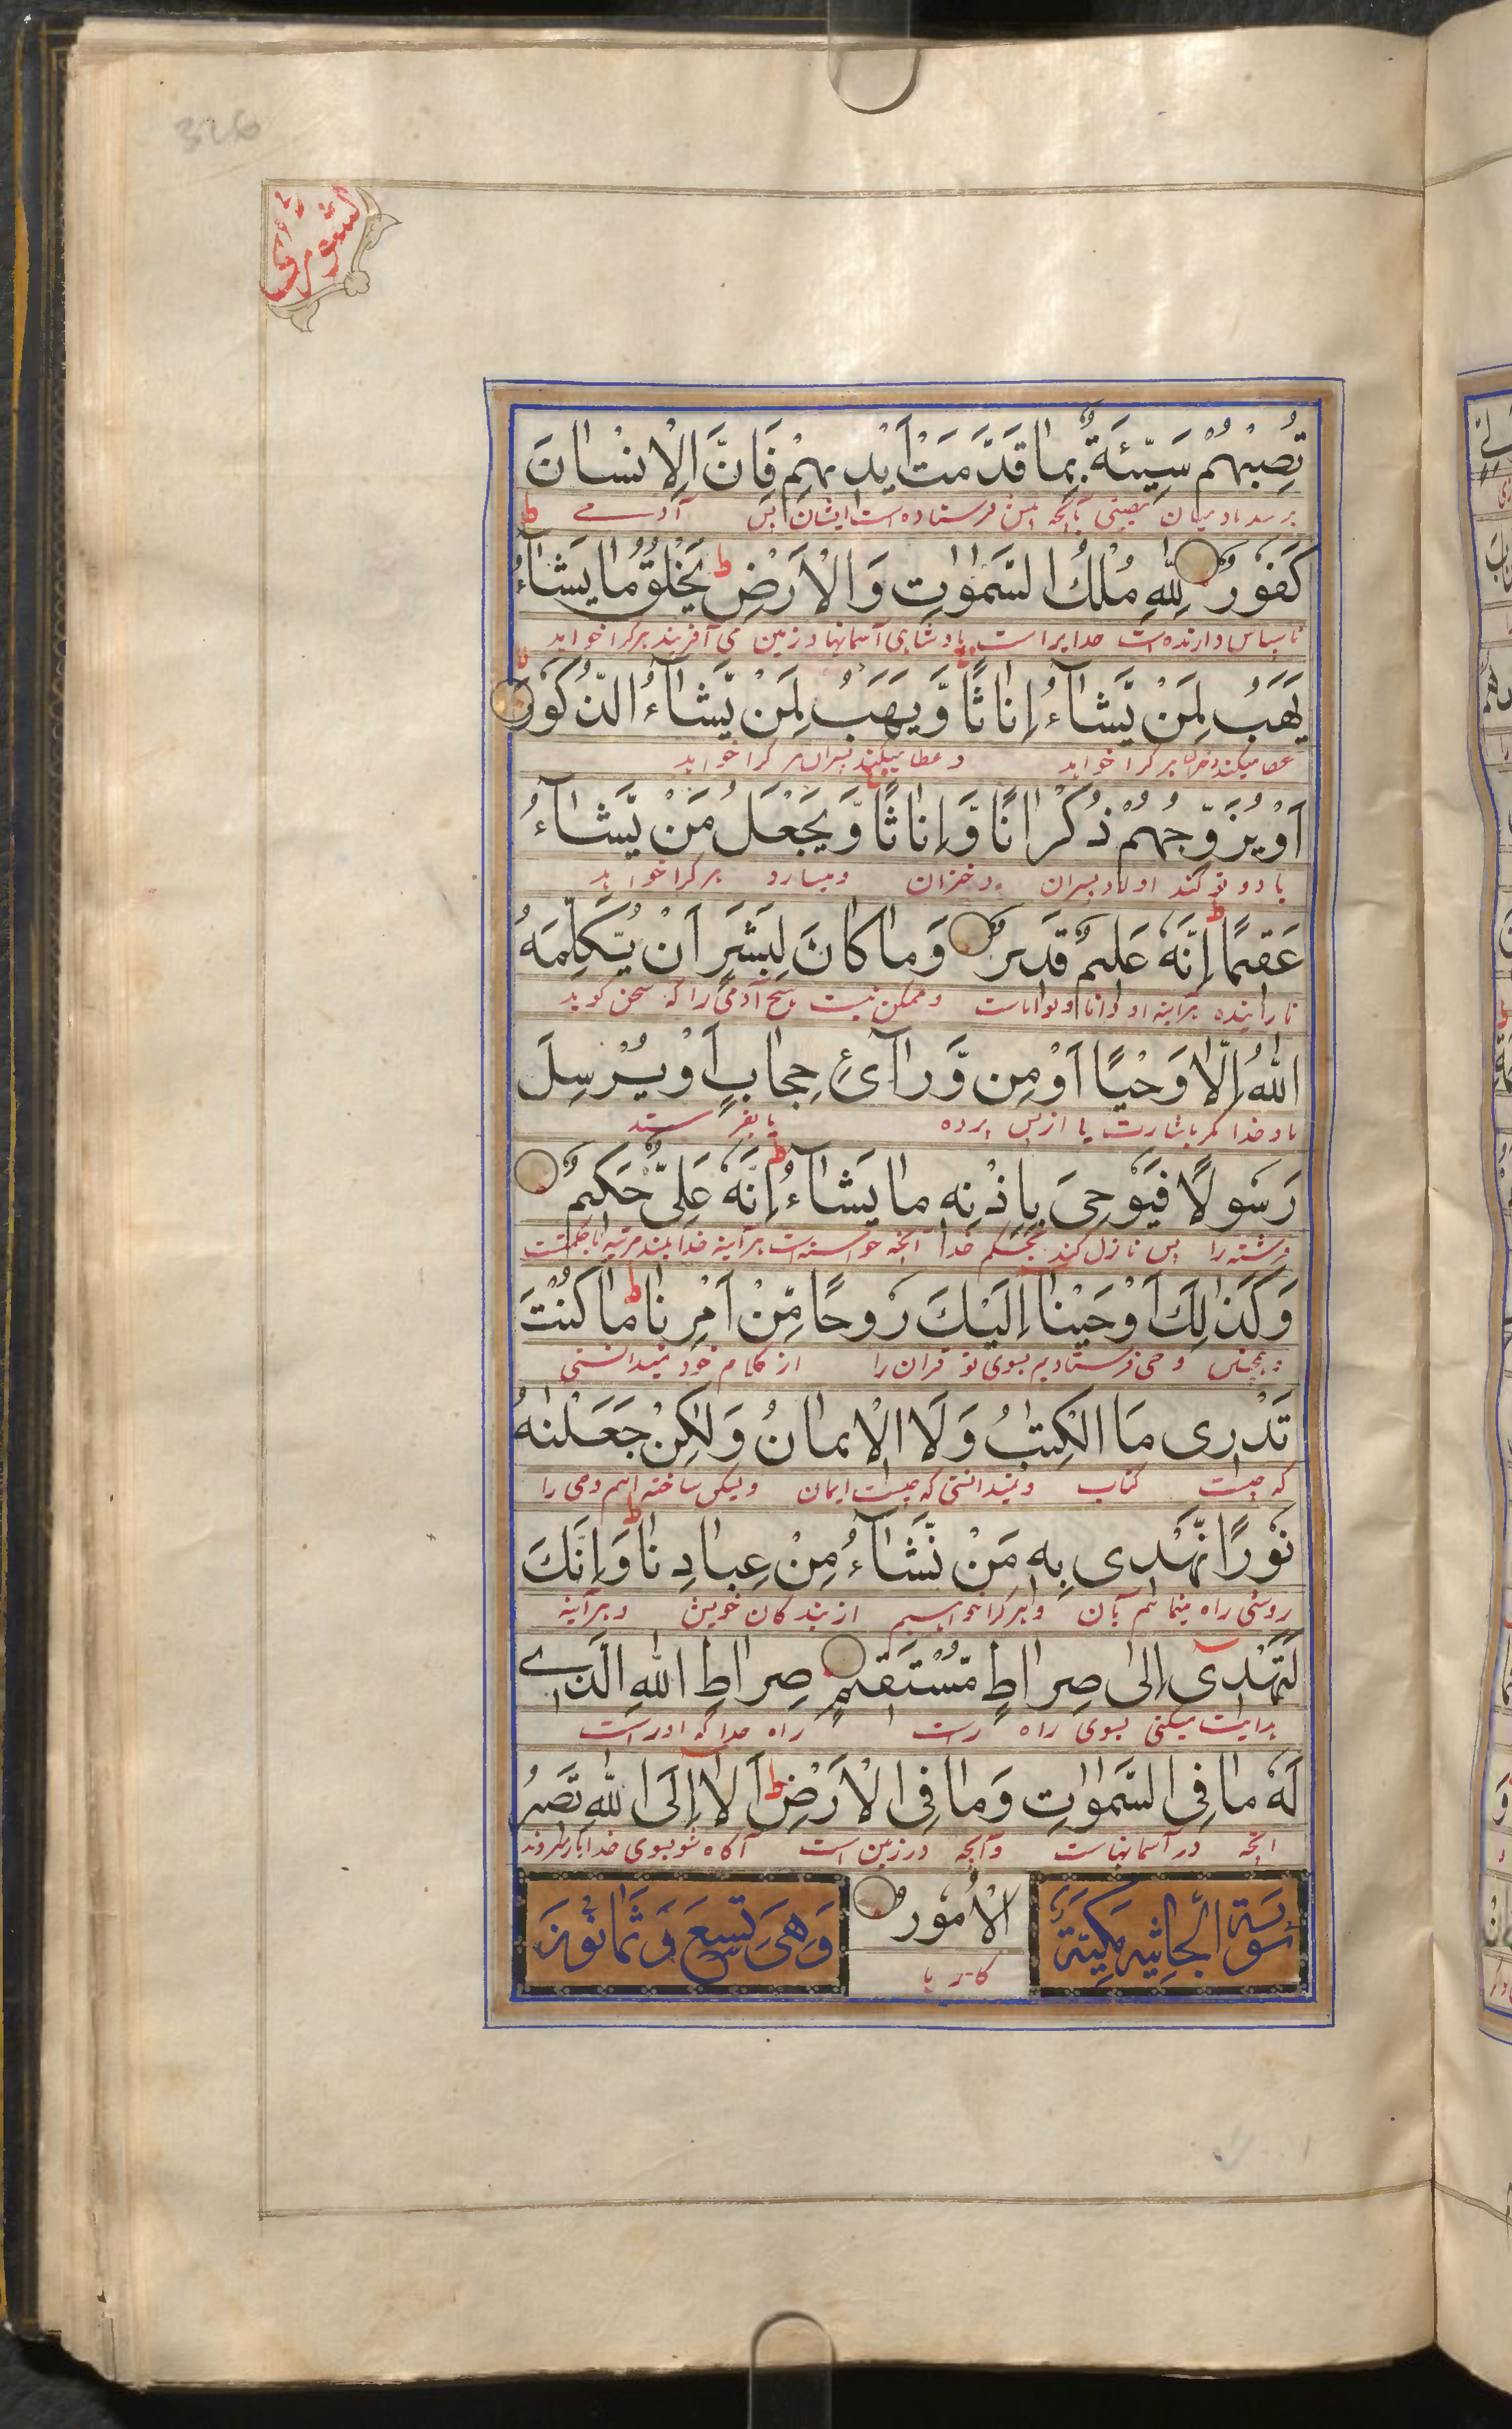 326
الشورى
تُصِبْهُمْ سَيِّئَةٌ بِمَا قَدَّمَتْ اَيْدِيهِمْ فَاِنَّ الْاِنْسَانَ
برسد بادمیان بآنچه پیش فرستاده است ایشان پس آدمی
كَفُورٌ لِلّٰهِ مُلْكُ السَّمٰوٰتِ وَالْاَرْضِ ط يَخْلُقُ مَا يَشَآءُ ط
ناسپاس دارنده است خدایراست پادشاهی آسمانها و زمین می آفریند هرکرا خواهد
يَهَبُ لِمَنْ يَّشَآءُ اِنَاثًا وَّيَهَبُ لِمَنْ يَّشَآءُ الذُّكُورَ
عطا میکند دختران هرکرا خواهد و عطا میکند پسران هرکرا خواهد
اَوْ يُزَوِّجُهُمْ ذُكْرَانًا وَّاِنَاثًا وَّيَجْعَلُ مَنْ يَّشَآءُ
یا دو نوع کند اولاد پسران و دختران و میسازد هرکرا خواهد
عَقِيمًا ط اِنَّهٗ عَلِيمٌ قَدِيرٌ وَمَا كَانَ لِبَشَرٍ اَنْ يُّكَلِّمَهُ
نازاینده هرآینه او دانا و تواناست و ممکن نیست هیچ آدمی را که سخن گوید
اللّٰهُ اِلَّا وَحْيًا اَوْ مِنْ وَّرَآئِ حِجَابٍ اَوْ يُرْسِلَ
باو خدا مگر باشارت یا از پس پرده یا بفرستد
رَسُولًا فَيُوحِىَ بِاِذْنِهٖ مَا يَشَآءُ ط اِنَّهٗ عَلِىٌّ حَكِيمٌ
فرشته را پس نازل کند بحکم خدا آنچه خواسته است هرآینه خدا بلند مرتبه با حکمتست
وَكَذٰلِكَ اَوْحَيْنَا اِلَيْكَ رُوحًا مِّنْ اَمْرِنَا ط مَا كُنْتَ
وهمچنین وحی فرستادیم بسوی تو قران را از کلام خود نمیدانستی
تَدْرِى مَا الْكِتٰبُ وَلَا الْاِيمَانُ وَلٰكِنْ جَعَلْنٰهُ
که چیست کتاب و نمیدانستی که چیست ایمان ولیکن ساخته ایم وحی را
نُورًا نَّهْدِى بِهٖ مَنْ نَّشَآءُ مِنْ عِبَادِنَا ط وَاِنَّكَ
روشنی راه مینمائیم بآن هرکرا خواهیم از بندگان خویش و هرآینه
لَتَهْدِىٓ اِلٰى صِرَاطٍ مُّسْتَقِيمٍ صِرَاطِ اللّٰهِ الَّذِے
هدایت میکنی بسوی راه راست راه خدا که اوراست
لَهٗ مَا فِى السَّمٰوٰتِ وَمَا فِى الْاَرْضِ ط اَلَا اِلَى اللّٰهِ تَصِيرُ
آنچه در آسمانهاست وآنچه در زمین است آگاه شو بسوی خدا باز میگردند
سورة الجاثيه مكية الْاُمُورُ وَهِىَ تِسْعٌ وَثَمَانُونَ
کارها